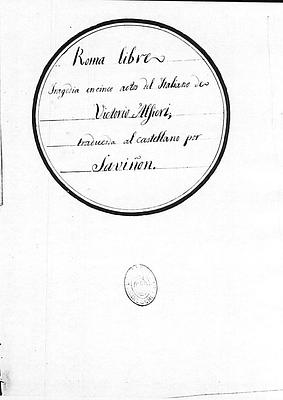 Roma libre
Tragedia en cinco actos del Italiano de
Victorio Alfieri,
traducida al castellano por
Saviñon.